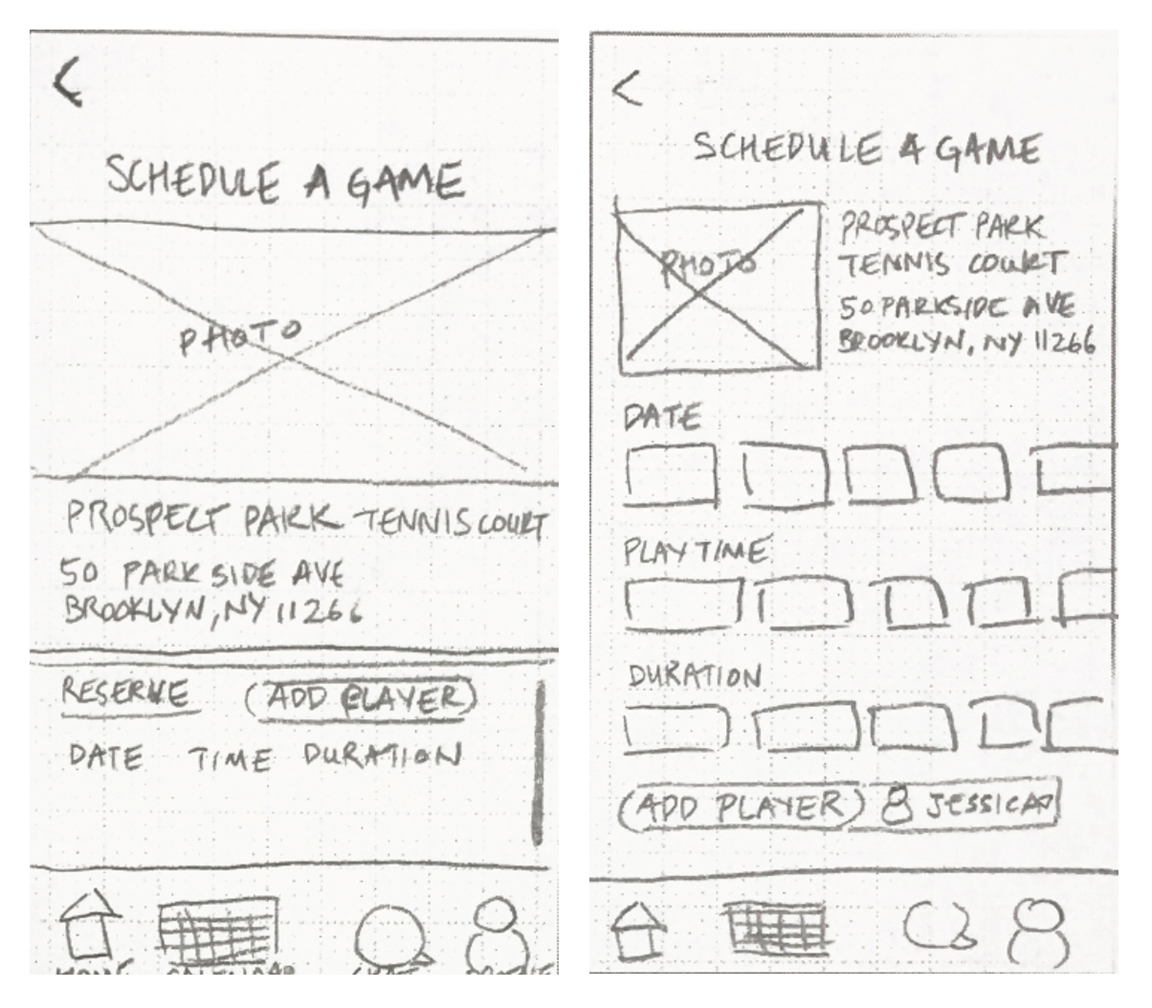 SCHEDULE A GAME
PHOTO
PROSPECT PARK TENNIS COURT
50 PARKSIDE AVE
BROOKLYN, NY 11266
RESERVE ADD PLAYER
DATE TIME DURATION
HOME CALENDAR CHAT PROFILE
SCHEDULE A GAME
PHOTO
PROSPECT PARK
TENNIS COURT
50 PARKSIDE AVE
BROOKLYN, NY 11266
DATE
PLAY TIME
DURATION
ADD PLAYER JESSICA